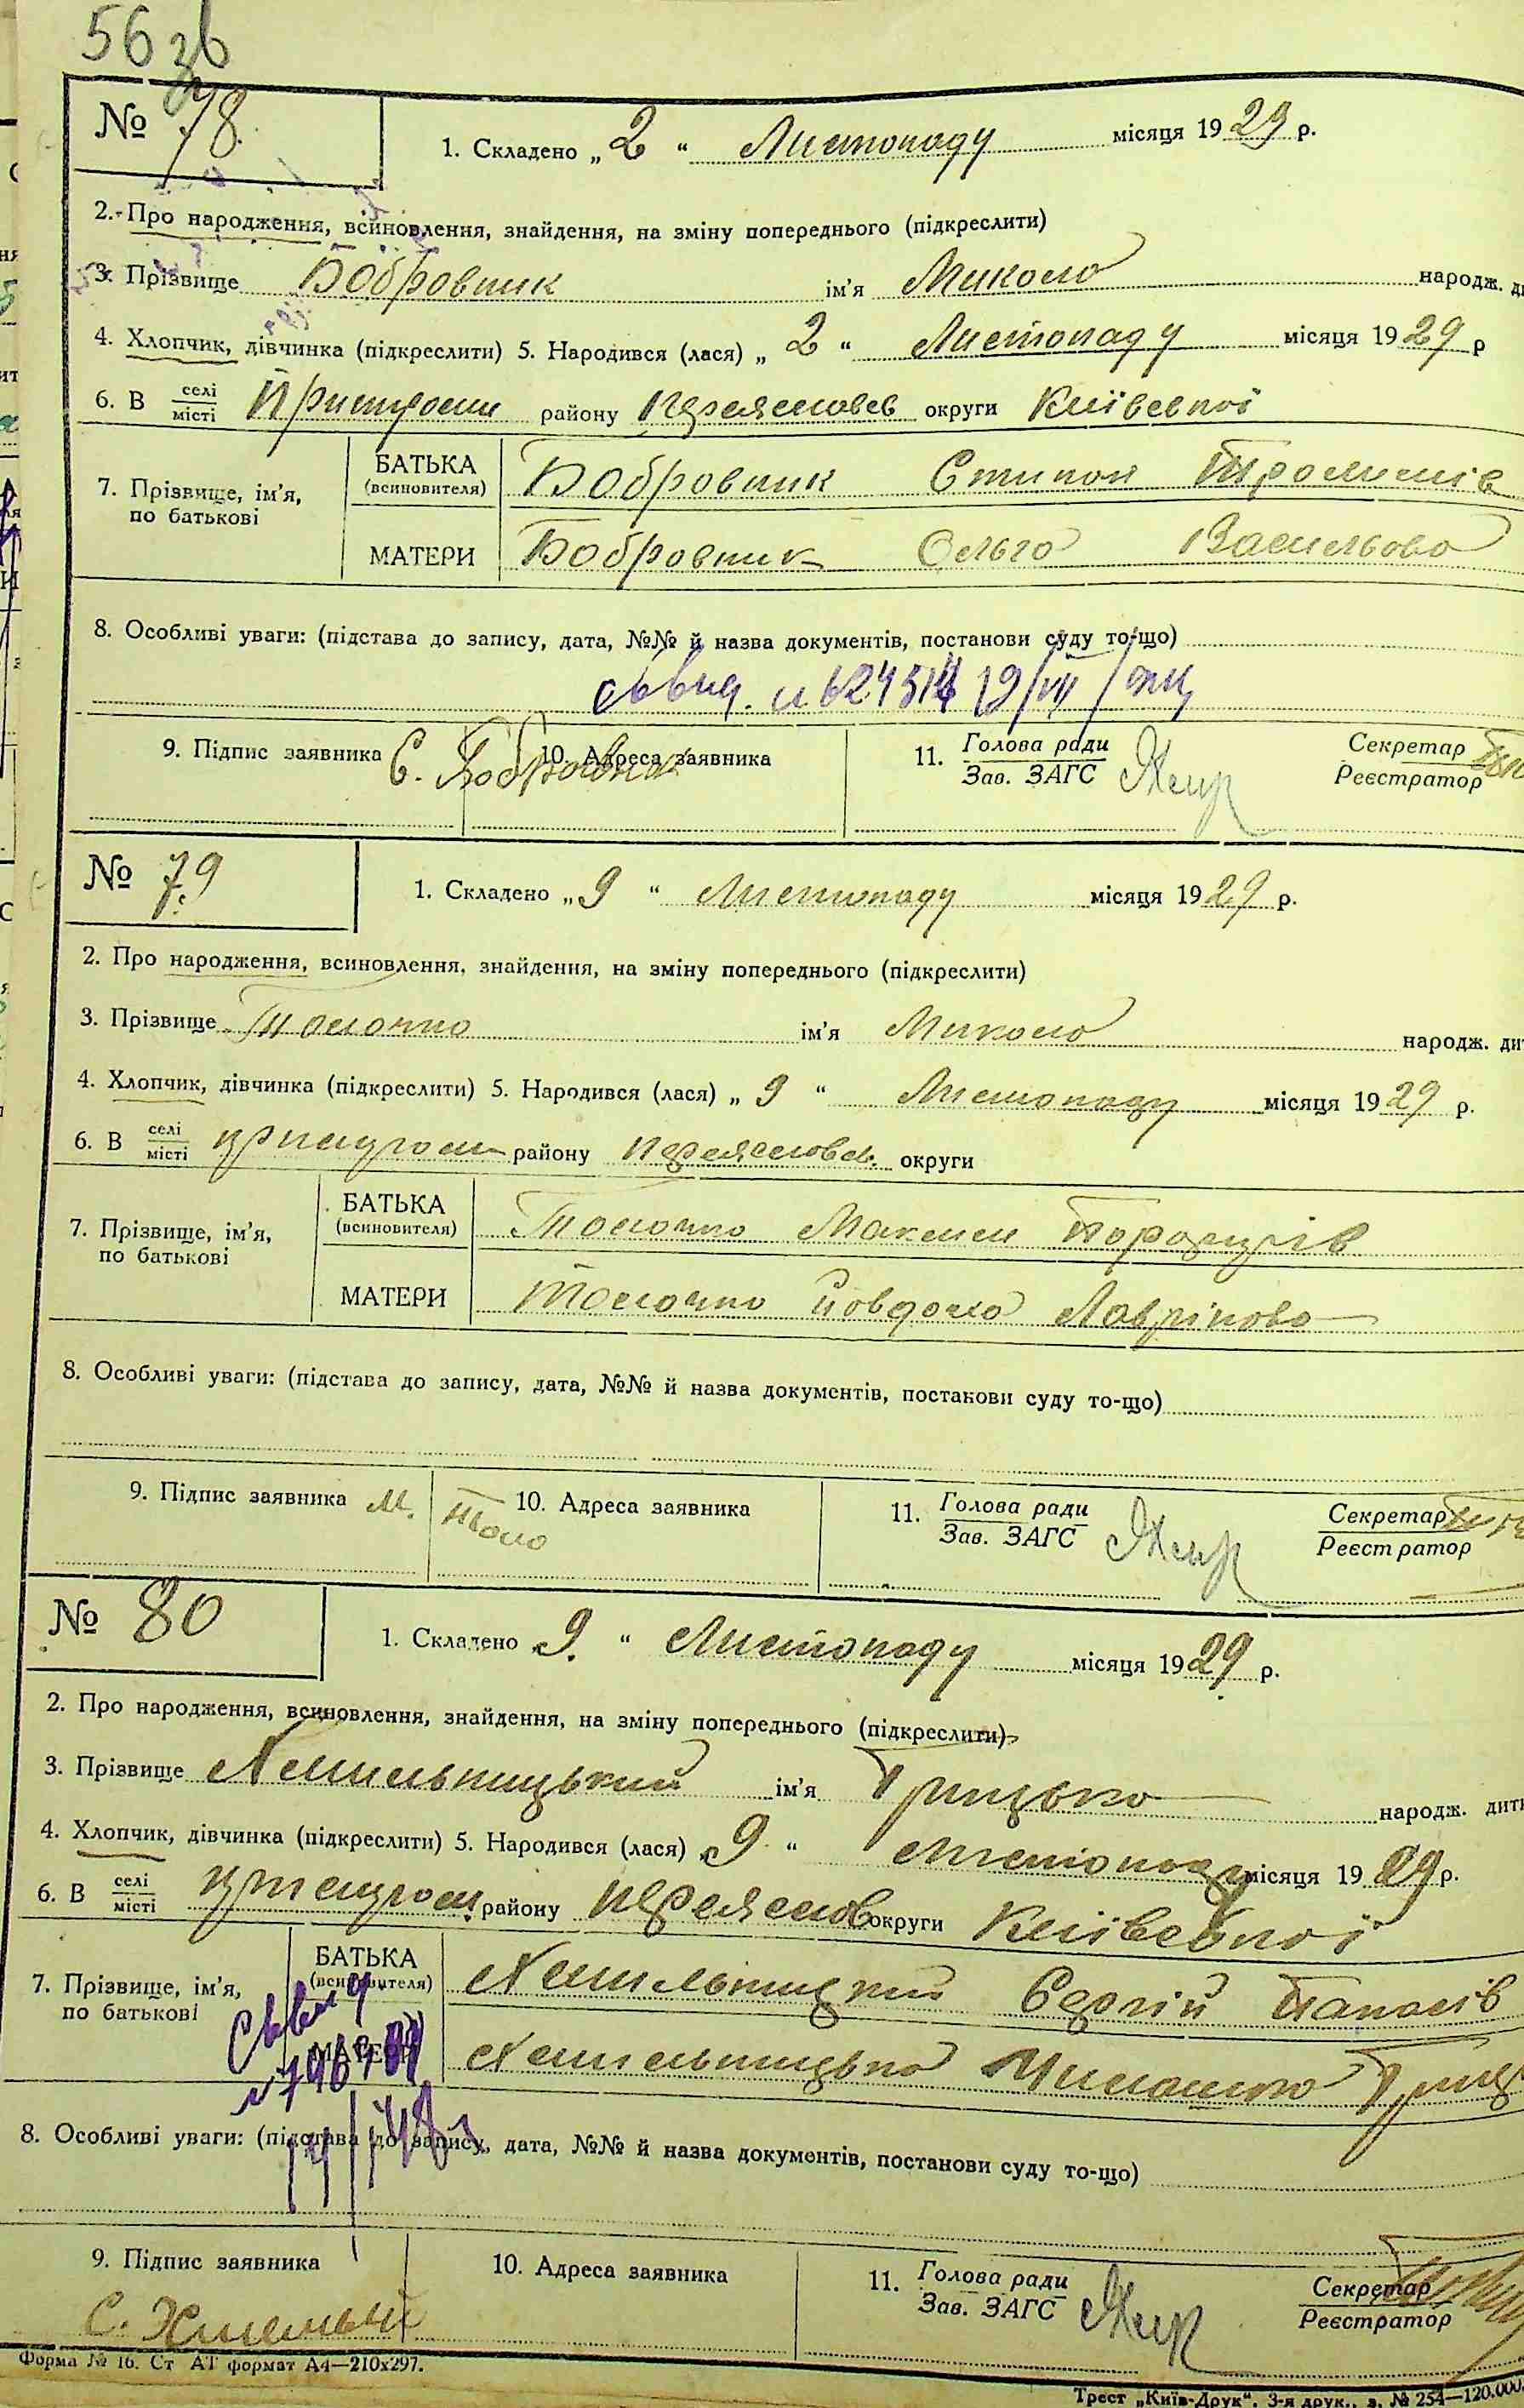 56 зв
№ 78.
1. Складено „ 2 “ Листопаду місяця 1929 р.
2. Про народження, всиновлення, знайдення, на зміну попереднього (підкреслити)
3. Прізвище Бобровник ім'я Микола народж.
4. Хлопчик, дівчинка (підкреслити) 5. Народився (лася) „ 2 “ Листопаду місяця 1929 р
6. В селі місті району округи Київскої
7. Прізвище, ім'я, по батькові
БАТЬКА (всиновителя) Бобровник Степан
МАТЕРИ Бобровник Ольга Васильова
8. Особливі уваги: (підстава до запису, дата, №№ й назва документів, постанови суду то-що)
9. Підпис заявника С. Бобровник 10. Адреса заявника 11. Голова ради Зав. ЗАГС Секретар Реєстратор
№ 79
1. Складено „ 9 “ Листопаду місяця 1929 р.
2. Про народження, всиновлення, знайдення, на зміну попереднього (підкреслити)
3. Прізвище Толочко ім'я Микола народж.
4. Хлопчик, дівчинка (підкреслити) 5. Народився (лася) „ 9 “ Листопаду місяця 1929 р.
6. В селі місті району округи
7. Прізвище, ім'я, по батькові
БАТЬКА (всиновителя) Толочко Максим
МАТЕРИ Толочко Явдоха
8. Особливі уваги: (підстава до запису, дата, №№ й назва документів, постанови суду то-що)
9. Підпис заявника М. Толо 10. Адреса заявника 11. Голова ради Зав. ЗАГС Секретар Реєстратор
№ 80
1. Складено 9. “ Листопаду місяця 1929 р.
2. Про народження, всиновлення, знайдення, на зміну попереднього (підкреслити)
3. Прізвище Хмильницький ім'я Грицько народж.
4. Хлопчик, дівчинка (підкреслити) 5. Народився (лася) „ 9 “ Листопаду місяця 1929 р.
6. В селі місті району округи Київскої
7. Прізвище, ім'я, по батькові
БАТЬКА (всиновителя) Хмильницкий Сергій Панасів
МАТЕРИ Хмильницька
8. Особливі уваги: (підстава до запису, дата, №№ й назва документів, постанови суду то-що)
9. Підпис заявника 10. Адреса заявника 11. Голова ради Зав. ЗАГС Секретар Реєстратор
Форма № 16. Ст АТ формат А4—210х297.
Трест „Київ-Друк“. 3-я друк., з. № 254—120.000.